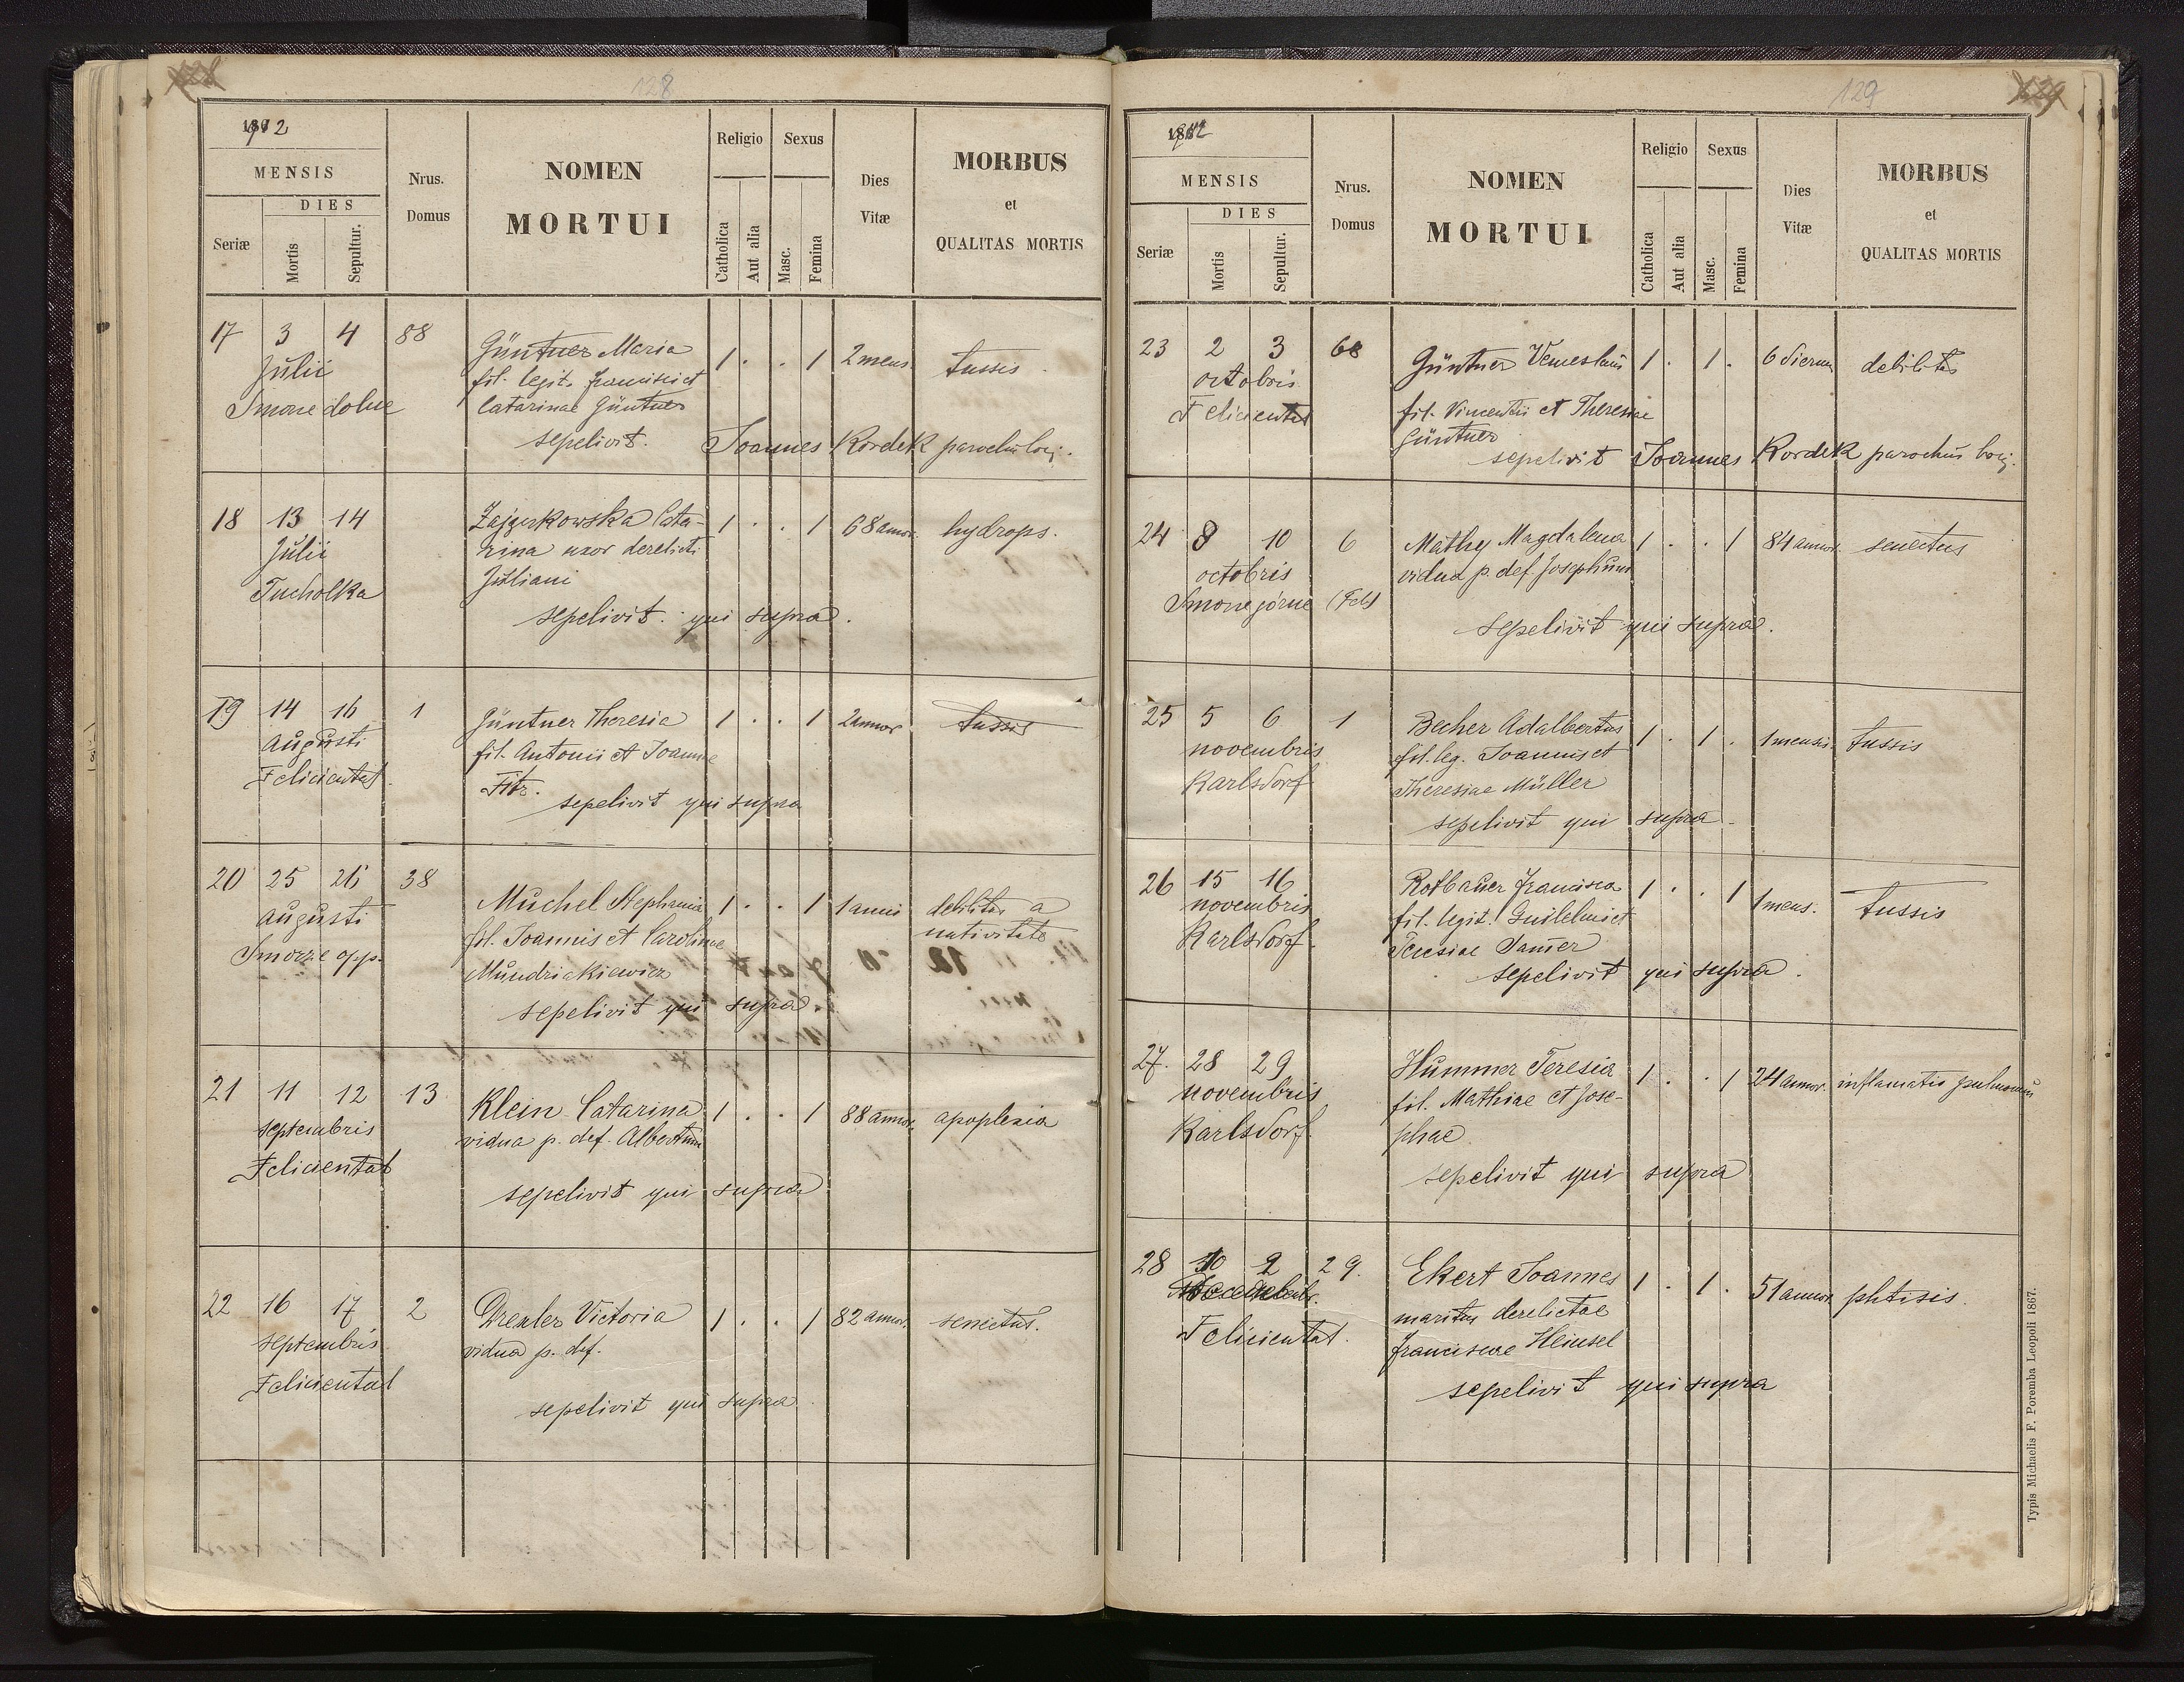 128
128
1912
MENSIS
DIES
Seriæ
Mortis
Sepultur.
Nrus. Domus
NOMEN
MORTUI
Religio
Catholica
Aut alia
Sexus
Masc.
Femina
Dies Vitæ
MORBUS
et
QUALITAS MORTIS
17 3 4 88 Güntner Maria 1 . . 1 2 mens. tussis
Julii fil. legit. Francisci et
Smorze dolne Catarinae Güntner
sepelivit. Joannes Kordek parochus loci.
18 13 14 Cata- 1 . . 1 68 annor. hydrops.
Julii rina uxor derelicti
Tucholka Juliani
sepelivit qui supra.
19 14 16 1 Güntner Theresia 1 . . 1 2 annor. tussis
Augusti fil. Antonii et Joannae
Feliciental Fitz.
sepelivit qui supra
20 25 26 38 Muchel Stephania 1 . . 1 1 anni debilitas a
nativitate
Augusti fil. Joannis et Carolinae
Smorze opp.
sepelivit qui supra.
21 11 12 13 Klein Catarina 1 . . 1 88 annor. apoplexia
septembris vidua p. def. Albertum
Feliciental
sepelivit qui supra
22 16 17 2 Drexler Victoria 1 . . 1 82 annor. senectus.
septembris vidua p. def.
Feliciental
sepelivit qui supra
129
129
1912
MENSIS
DIES
Seriæ
Mortis
Sepultur.
Nrus. Domus
NOMEN
MORTUI
Religio
Catholica
Aut alia
Sexus
Masc.
Femina
Dies Vitæ
MORBUS
et
QUALITAS MORTIS
23 2 3 68 Güntner Venceslaus 1 . 1 . 6 dierum debilitas
octobris
Feliciental fil. Vincentii et Theresiae
Güntner
sepelivit Joannes Kordek parochus loci.
24 8 10 6 Mathy Magdalena 1 . . 1 84 annor. senectus
octobris vidua p. def. Josephum
Smorze górne (Fel)
sepelivit qui supra.
25 5 6 1 Becher Adalbertus 1 . 1 . 1 mensis. tussis
novembris fil. leg. Joannis et
Karlsdorf Theresiae Müller
sepelivit qui supra
26 15 16 Rotbauer Francisca 1 . . 1 1 mens. tussis
novembris fil. legit. Guilelmi et
Karlsdorf. Teresiae
sepelivit qui supra.
27. 28 29 Hummer Teresia 1 . . 1 24 annor. inflamatio pulmonum
novembris fil. Mathiae et Jose-
Karlsdorf. phae
sepelivit qui supra
28 2 29. Ekert Joannes 1 . 1 . 51 annor. phtisis.
maritus derelictae
Feliciental. Franciscae Heinsel
sepelivit qui supra
Typis Michaelis F. Poremba Leopoli 1867.